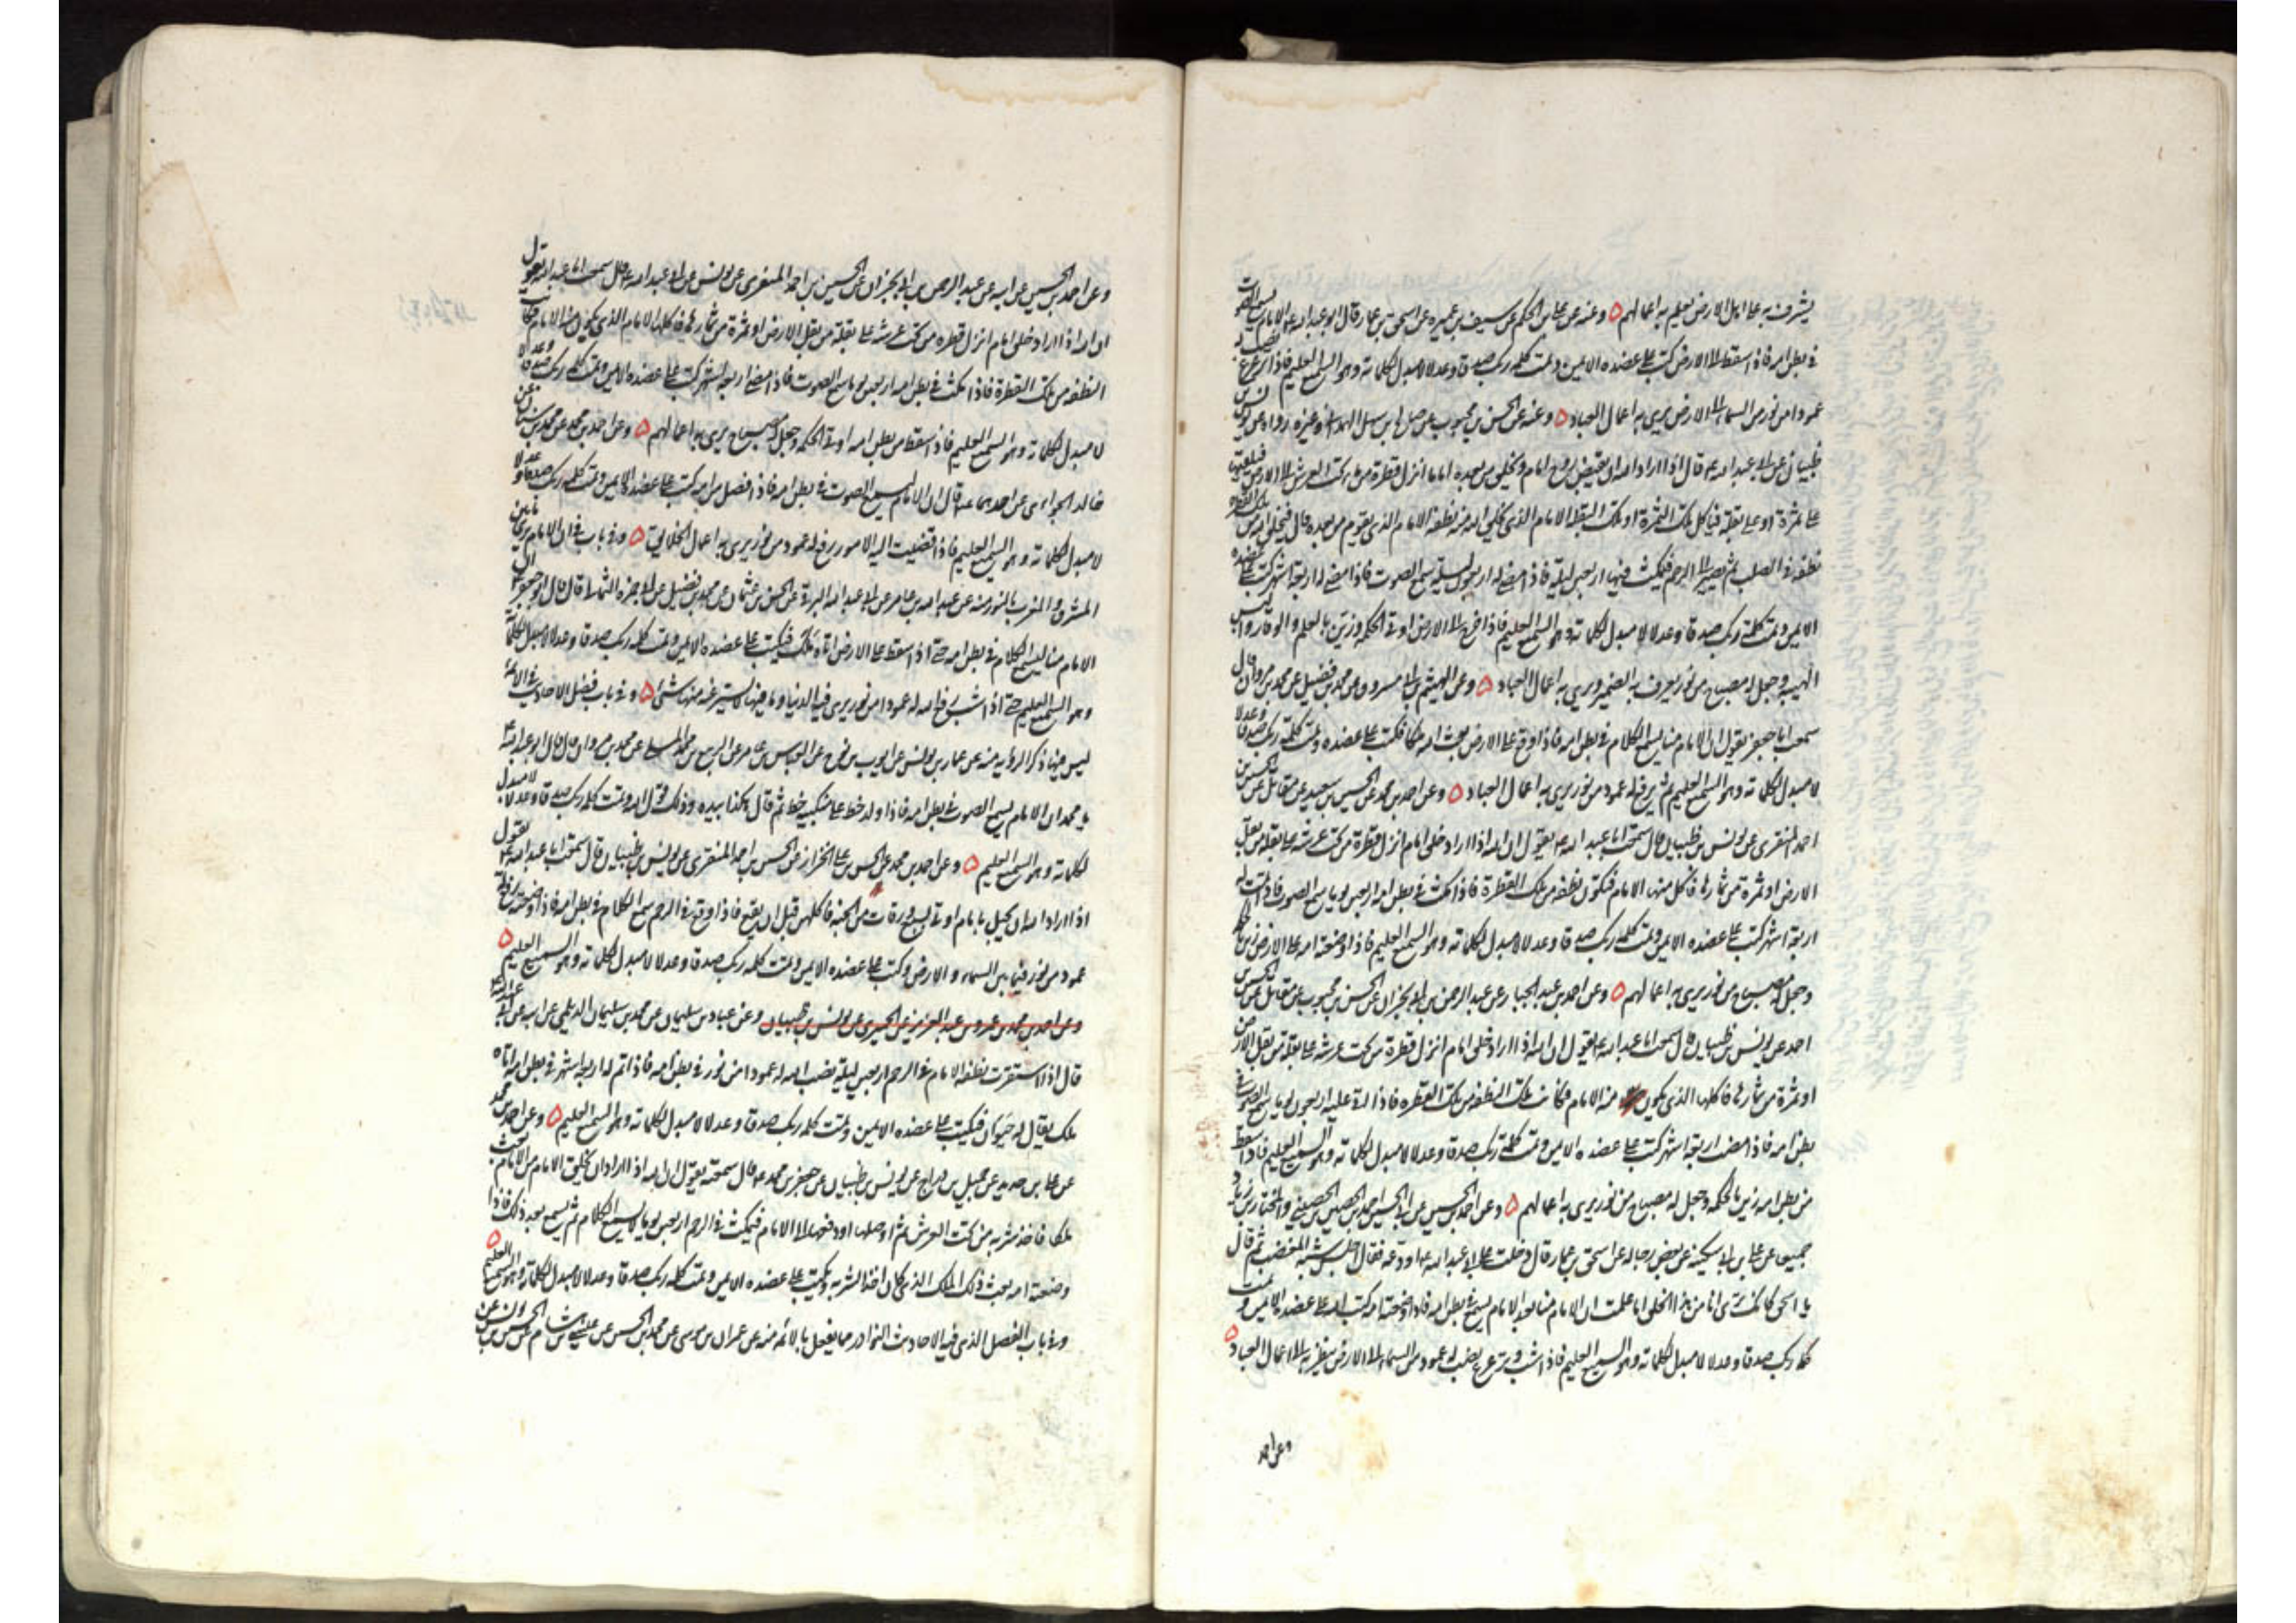 يشرف به على اهل الارض يعلم به اعمالهم ٥ وعنه عن على بن الحكم عن سيف بن عميره عن اسحق بن عمار قال قال ابو عبد الله الامام يسمع الصوت
فى بطن امه فاذا سقط الى الارض كتب على عضده الايمن وتمت كلمه ربك صدقا وعدلا لا مبدل لكلماته وهو السميع العليم فاذا ترعرع نصب له
عمودا من نور من السماء الى الارض يرى به اعمال العباد ٥ وعنه عن الحسن بن محبوب عن صالح بن سهل الهمدانى وغيره رواه عن يونس بن
ظبيان عن ابى عبد الله ع قال اذا اراد الله ان يقبض روح امام ويخلق من بعده اماما انزل قطرة من تحت العرش الى الارض فيلقيها
على ثمرة او على بقلة فياكل تلك الثمرة او تلك البقلة الامام الذى يخلق الله منه نطفة الامام الذى يقوم من بعده قال فيخلق الله من تلك القطرة
نطفة فى الصلب ثم تصير الى الرحم فيمكث فيها اربعين ليلة فاذا مضى له اربعون ليلة سمع الصوت فاذا مضى له اربعة اشهر كتب على عضده
الايمن وتمت كلمة ربك صدقا وعدلا لا مبدل لكلماته وهو السميع العليم فاذا خرج الى الارض اوتى الحكمه وزين بالعلم والوقار والبس
الهيبه وجعل له مصباح من نور يعرف به الضمير ويرى به اعمال العباد ٥ وعن الهيثم بن ابى مسروق عن محمد بن فضيل عن محمد بن مروان قال
سمعت ابا جعفر يقول ان الامام منا يسمع الكلام فى بطن امه فاذا وقع على الارض بعث الله ملكا فكتب على عضده وتمت كلمة ربك صدقا وعدلا
لا مبدل لكلماته وهو السميع العليم ثم يرفع له عمود من نور يرى به اعمال العباد ٥ وعن احمد بن محمد عن الحسين بن سعيد عن مقاتل عن الحسين بن
احمد المنقرى عن يونس بن ظبيان قال سمعت ابا عبد الله ع يقول ان الله اذا اراد خلق امام انزل قطرة من تحت عرشه على بقلة من بقل
الارض او ثمرة من ثمارها فاكل منها الامام فتكون نطفه من تلك القطرة فاذا مكث فى بطن امه اربعين يوما سمع الصوت فاذا تمت له
اربعة اشهر كتب على عضده الايمن وتمت كلمه ربك صدقا وعدلا لا مبدل لكلماته وهو السميع العليم فاذا وضعته امه على الارض زين بالحكمه
وجعل له مصباح من نور يرى به اعمالهم ٥ وعن احمد بن عبد الجبار عن عبد الرحمن بن ابى نجران عن الحسن بن محبوب عن مقاتل عن الحسن بن
احمد عن يونس بن ظبيان قال سمعت ابا عبد الله ع يقول ان الله اذا اراد خلق امام انزل قطرة من تحت عرشه على بقلة من بقل الارض
او ثمرة من ثمارها فاكلها الذى يكون منه الامام فكانت تلك النطفه من تلك القطره فاذا اتت عليه اربعون يوما سمع الصوت فى
بطن امه فاذا مضت اربعة اشهر كتب على عضده الايمن وتمت كلمة ربك صدقا وعدلا لا مبدل لكلماته وهو السميع العليم فاذا سقط
من بطن امه زين بالحكمه وجعل له مصباح من نور يرى به اعمالهم ٥ وعن احمد بن الحسين عن ابى الحسين احمد بن الحصين الحصينى والمختار بن زياد
جميعا عن على بن ابى سكينه عن بعض رجاله عن اسحق بن عمار قال دخلت على ابى عبد الله ع اودعه فقال اجلس شبه المغضب ثم قال
يا اسحق كانك ترى انا من هذا الخلق اما علمت ان الامام منا بعد الامام يسمع فى بطن امه فاذا وضعته امه كتب الله على عضده الايمن وتمت
كلمة ربك صدقا وعدلا لا مبدل لكلماته وهو السميع العليم فاذا شب وترعرع نصب له عمود من السماء الى الارض ينظر به الى اعمال العباد ٥
وعن احمد
وعن احمد بن الحسين عن ابيه عن عبد الرحمن بن ابى نجران عن الحسين بن احمد المنقرى عن يونس عن ابى عبد الله ع قال سمعت ابا عبد الله يقول
ان الله اذا اراد خلق امام انزل قطره من تحت عرشه على بقلة من بقل الارض او ثمرة من ثمارها فاكلها الامام الذى يكون منه الامام فكانت
النطفه من تلك القطرة فاذا مكث فى بطن امه اربعين يوما سمع الصوت فاذا مضى اربعة اشهر كتب على عضده الايمن وتمت كلمه ربك صدقا وعدلا
لا مبدل لكلماته وهو السميع العليم فاذا سقط من بطن امه اوتى الحكمه وجعل له مصباح يرى به اعمالهم ٥ وعن احمد بن محمد عن محمد بن سنان عن
خالد الجوانى عن احدهما ع قال ان الامام ليسمع الصوت فى بطن امه فاذا فصل من امه كتب على عضده الايمن وتمت كلمه ربك صدقا وعدلا
لا مبدل لكلماته وهو السميع العليم فاذا افضيت اليه الامور رفع له عمود من نور يرى به اعمال الخلايق ٥ وفى باب فى ان الامام يرى ما بين
المشرق والمغرب بالنور منه عن عبد الله بن عامر عن ابى عبد الله البرقى عن الحسن بن عثمان عن محمد بن فضيل عن ابى حمزه الثمالى قال قال ابو جعفر ع ان
الامام منا ليسمع الكلام فى بطن امه حتى اذا سقط على الارض اتاه ملك فيكتب على عضده الايمن وتمت كلمه ربك صدقا وعدلا لا مبدل لكلماته
وهو السميع العليم حتى اذا شب رفع الله له عمودا من نور يرى فيه الدنيا وما فيها لا يستر عنه منها شئ ٥ وفى باب فضل الاحاديث فى الائمة
ليس فيها ذكر الرؤيه منه عن عمار بن يونس عن ايوب بن نوح عن العباس بن عامر عن الربيع بن محمد المسلى عن محمد بن مروان قال قال ابو عبد الله ع
يا محمد ان الامام يسمع الصوت فى بطن امه فاذا ولد خط على منكبيه خط ثم قال هكذا بيده وذلك قول الله وتمت كلمه ربك صدقا وعدلا لا مبدل
لكلماته وهو السميع العليم ٥ وعن احمد بن محمد عن الحسن بن على الخزاز عن الحسين بن احمد المنقرى عن يونس بن ظبيان قال سمعت ابا عبد الله ع يقول
اذا اراد الله ان يحبل بامام اوتى بسبع ورقات من الجنه فاكلهن قبل ان يقع فاذا وقع فى الرحم سمع الكلام فى بطن امه فاذا وضعته رفع له
عمود من نور فيما بين السماء والارض وكتب على عضده الايمن وتمت كلمه ربك صدقا وعدلا لا مبدل لكلماته وهو السميع العليم ٥
وعن احمد بن محمد بن عمرو بن عبد العزيز عن الحميرى عن يونس بن ظبيان وعن عباد بن سليمان عن محمد بن سليمان الديلمى عن ابيه عن ابى عبد الله ع
قال اذا استقرت نطفه الامام فى الرحم اربعين ليلة نصب الله له عمودا من نور فى بطن امه فاذا تم له اربعة اشهر فى بطن امه اتاه
ملك يقال له حيوان فيكتب على عضده الايمن وتمت كلمه ربك صدقا وعدلا لا مبدل لكلماته وهو السميع العليم ٥ وعن احمد بن محمد
عن على بن حديد عن جميل بن دراج عن يونس بن ظبيان عن جعفر بن محمد ع قال سمعته يقول ان الله اذا اراد ان يخلق الامام من الامام بعث
ملكا فاخذ شربه من تحت العرش ثم اوصلها او دفعها الى الامام فيمكث فى الرحم اربعين يوما لا يسمع الكلام ثم يسمع بعد ذلك فاذا
وضعته امه بعث ذلك الملك الذى كان اخذ الشربه ويكتب على عضده الايمن وتمت كلمه ربك صدقا وعدلا لا مبدل لكلماته وهو السميع العليم ٥
وفى باب الفصل الذى فيه الاحاديث النوادر مما يفعل بالائمه منه عن عمران بن موسى عن محمد بن الحسن عن عيسى بن هشام عن الحسن بن يونس عن